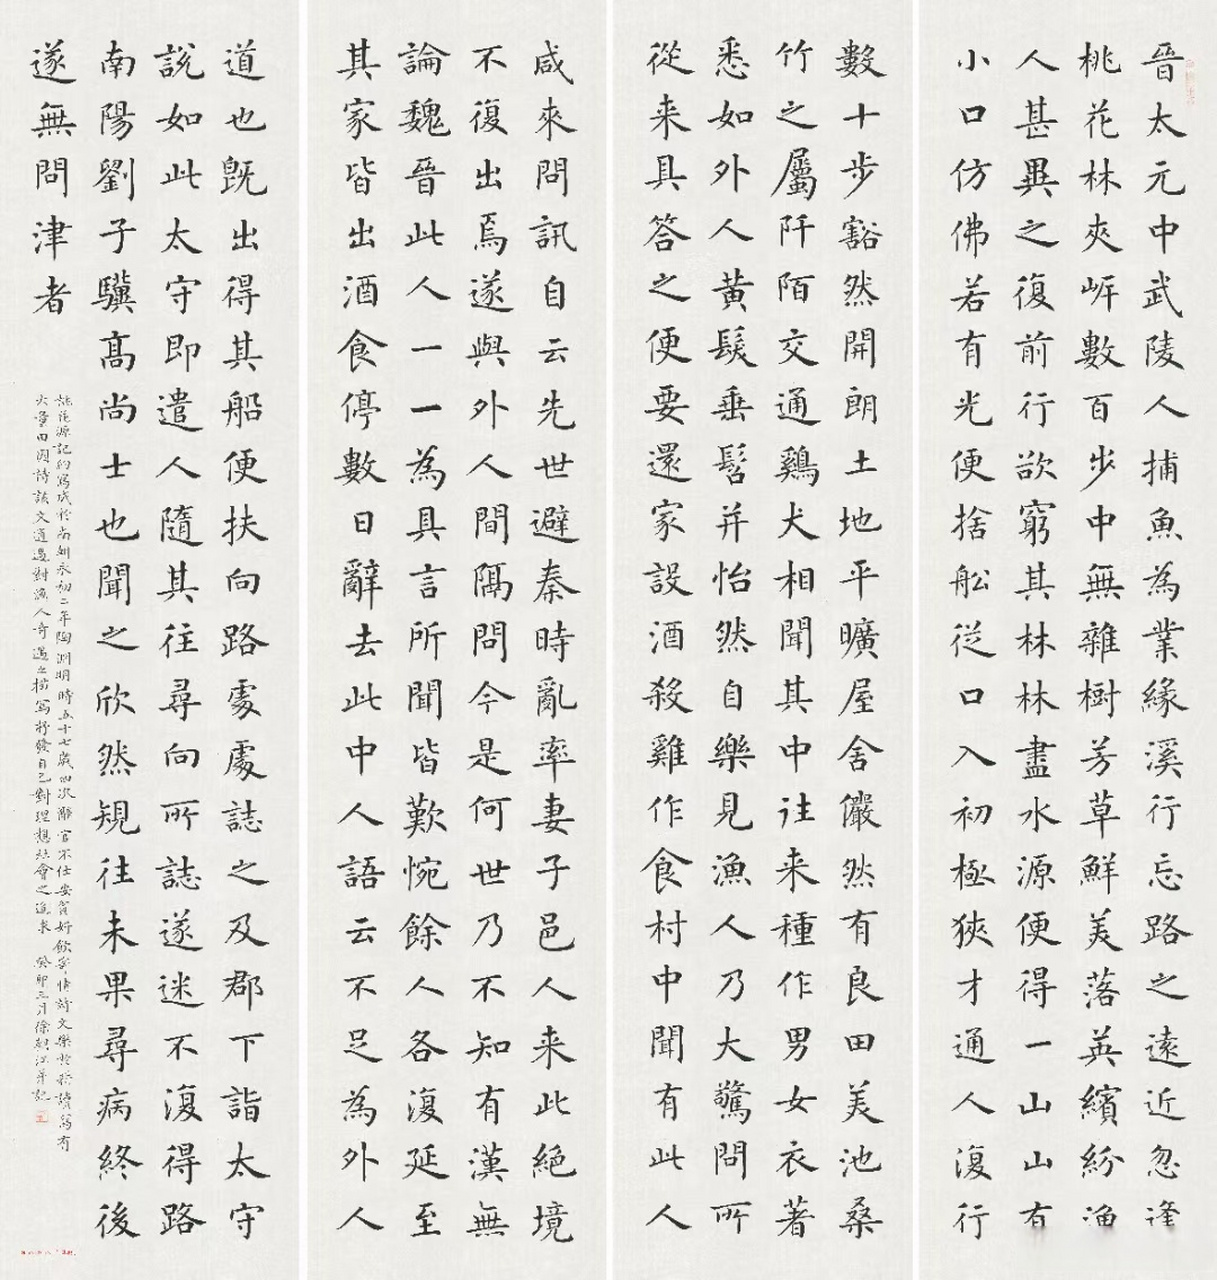 晉太元中武陵人捕魚為業緣溪行忘路之遠近忽逢
桃花林夾岸數百步中無雜樹芳草鮮美落英繽紛漁
人甚異之復前行欲窮其林林盡水源便得一山山有
小口仿佛若有光便捨船從口入初極狹才通人復行
數十步豁然開朗土地平曠屋舍儼然有良田美池桑
竹之屬阡陌交通鷄犬相聞其中往来種作男女衣著
悉如外人黃髮垂髫并怡然自樂見漁人乃大驚問所
從来具答之便要還家設酒殺雞作食村中聞有此人
咸來問訊自云先世避秦時亂率妻子邑人来此絕境
不復出焉遂與外人間隔問今是何世乃不知有漢無
論魏晉此人一一為具言所聞皆歎惋餘人各復延至
其家皆出酒食停數日辭去此中人語云不足為外人
道也既出得其船便扶向路處處誌之及郡下詣太守
說如此太守即遣人隨其往尋向所誌遂迷不復得路
南陽劉子驥高尚士也聞之欣然規往未果尋病終後
遂無問津者
桃花源記約寫成於南朝永初二年陶淵明時五十七歲四次辭官不仕安貧好飲寄情詩文樂於耕讀寫有
大量田園詩該文通過對漁人奇遇之描寫抒發自己對理想社會之追求 癸卯三月徐朝江并記